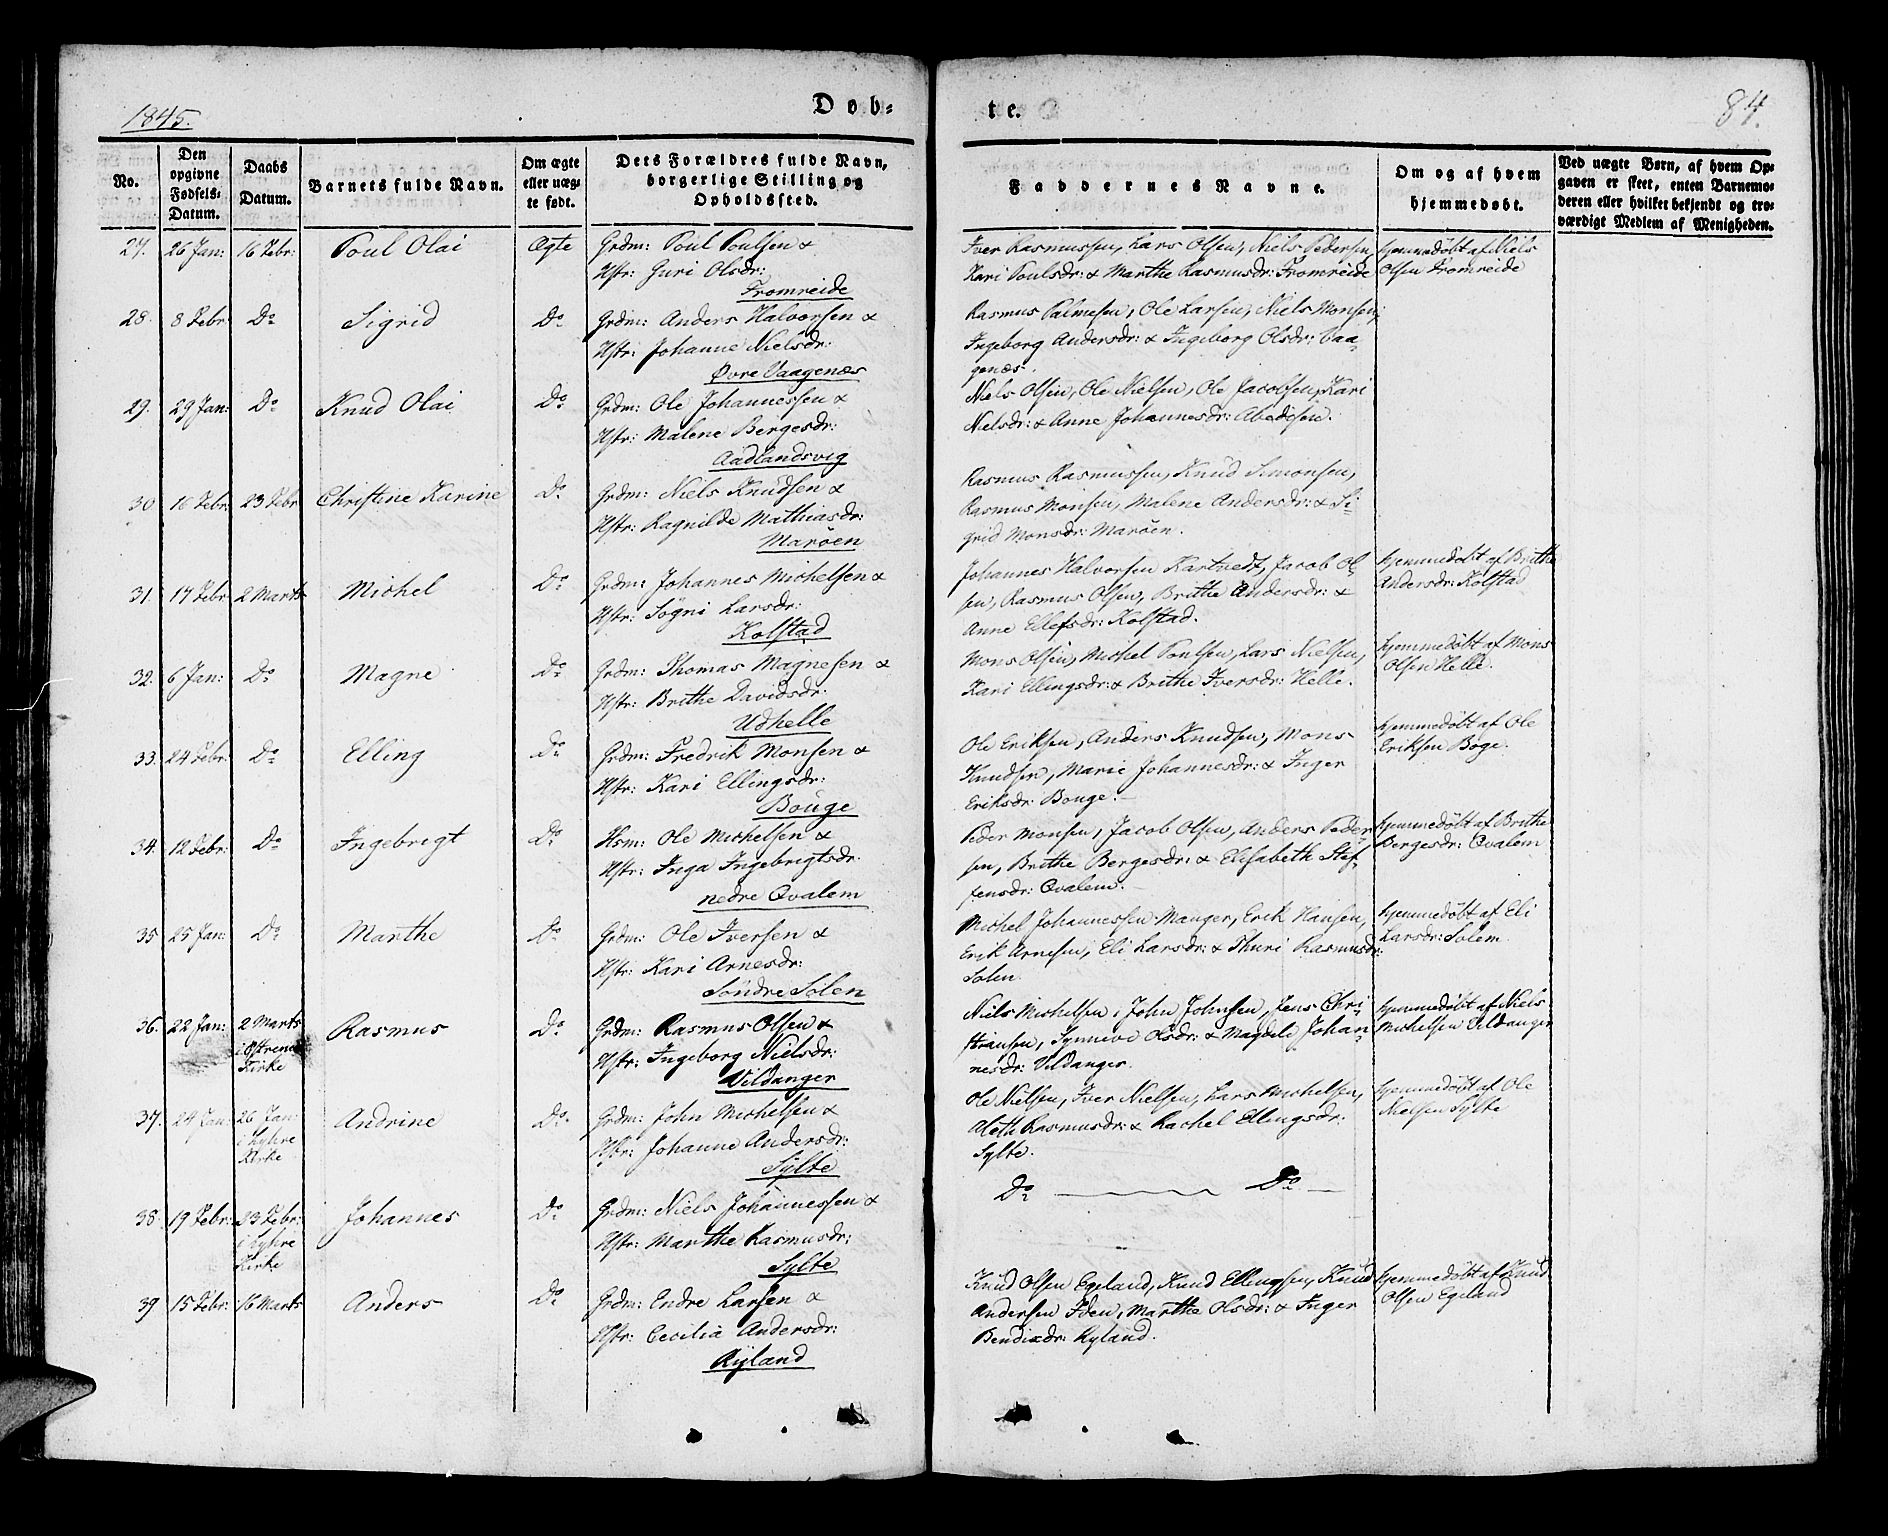 1845.
Døb-
te.
84.
No.
Den
opgivne
Fødsels-
Datum.
Daabs
Datum.
Barnets fulde Navn.
Om ægte
eller uæg-
te født.
Dets Forældres fulde Navn,
borgerlige Stilling og
Opholdssted.
Faddernes Navne.
Om og af hvem
hjemmedøbt.
Ved uægte Børn, af hvem Op-
gaven er skeet, enten Barnemo-
deren eller hvilket bekjendt og tro-
værdigt Medlem af Menigheden.
27. 26 Jan: 16 Febr: Poul Olai Ægte Grdm: Poul Poulsen &
Hstr: Guri Olsdr:
Fromreide
Iver Rasmussen, Lars Olsen, Niels Pedersen
Kari Poulsdr: & Marthe Rasmusdr: Fromreide
hjemmedøbt af Niels
Olsen Fromreide
28. 8 Febr: Do Sigrid Do Grdm: Anders Halvorsen &
Hstr: Johanne Nielsdr:
Øvre Vaagenæs
Rasmus Palmesen, Ole Larsen, Niels Monsen,
Ingeborg Andersdr: & Ingeborg Olsdr: Vaa-
genæs.
29. 29 Jan: Do Knud Olai Do Grdm: Ole Johannessen &
Hstr: Malene Bergesdr:
Aadlandsvig
Niels Olsen, Ole Nielsen, Ole Jacobsen, Kari
Nielsdr: & Anne Johannesdr:
30 16 Febr: 23 Febr Christine Karine Do Grdm: Niels Knudsen &
Hstr: Ragnilde Mathiasdr:
Marøen
Rasmus Rasmussen, Knud Simonsen,
Rasmus Monsen, Malene Andersdr: & Si-
grid Monsdr: Marøen.
31. 17 Febr 2 Marts Michel Do Grdm: Johannes Michelsen &
Hstr: Søgni Larsdr:
Kolstad
Johannes Halvorsen Kartvedt, Jacob Ol-
sen, Rasmus Olsen, Brithe Andersdr: &
Anne Ellefsdr: Kolstad.
hjemmedøbt af Brithe
Andersdr: Kolstad
32. 6 Jan: Do Magne Do Grdm: Thomas Magnesen &
Hstr: Brithe Davidsdr:
Udhelle
Mons Olsen, Michel Poulsen, Lars Nielsen,
Kari Ellingsdr: & Brithe Iversdr: Helle.
hjemmedøbt af Mons
Olsen Helle.
33. 24 Febr: Do Elling Do Grdm: Fredrik Monsen &
Hstr: Kari Ellingsdr:
Bouge
Ole Eriksen, Anders Knudsen, Mons
Knudsen, Marie Johannesdr: & Inger
Eriksdr: Bouge.
hjemmedøbt af Ole
Eriksen Boge.
34. 12 Febr: Do Ingebrigt Do Hsm: Ole Michelsen &
Hstr: Inga Ingebrigtsdr:
nedre Qvalem
Peder Monsen, Jacob Olsen, Anders Peder-
sen, Brithe Bergesdr: & Elisabeth Stef-
fensdr: Qvalem.
hjemmedøbt af Brithe
Bergesdr: Qvalem
35 25 Jan: Do Marthe Do Grdm: Ole Iversen &
Hstr: Kari Arnesdr:
Søndre Solen
Michel Johannessen Manger, Erik Hansen,
Erik Arnesen, Eli Larsdr: & Thuri Rasmusdr:
Solen
hjemmedøbt af Eli
Larsdr: Solem
36. 22 Jan: 2 Marts Rasmus Do Grdm: Rasmus Olsen &
i Østrene
Kirke
Hstr: Ingeborg Nielsdr:
Vildanger
Niels Michelsen, John Johnsen, Jens Chri-
stiansen, Synneve Olsdr: & Magdeli Johan-
nesdr: Vildanger.
hjemmedøbt af Niels
Michelsen Vildanger
37. 24 Jan: 26 Jan: Andrine Do Grdm: John Michelsen &
i Lyhre
Kirke
Hstr: Johanne Andersdr:
Sylte
Ole Nielsen, Iver Nielsen, Lars Michelsen,
Aleth Rasmusdr: & Rachel Ellingsdr:
Sylte.
hjemmedøbt af Ole
Nielsen Sylte
38. 19 Febr: 23 Febr: Johannes Do Grdm: Niels Johannessen &
i Lyhre
Kirke
Hstr: Marthe Rasmusdr:
Sylte
Do Do
39 15 Febr: 16 Marts Anders Do Grdm: Endre Larsen &
Hstr: Cecilia Andersdr:
Ryland
Knud Olsen Egeland, Knud Ellingsen, Knud
Andersen Iden, Marthe Olsdr: & Inger
Bendixdr: Ryland.
hjemmedøbt af Knud
Olsen Egeland